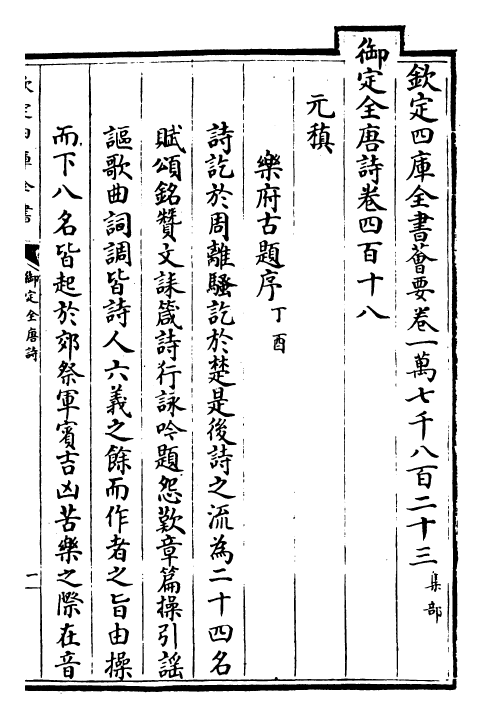 欽定四庫全書薈要卷一萬七千八百二十三 集部
御定全唐詩卷四百十八
元稹
樂府古題序 丁酉
詩訖於周離騷訖於楚是後詩之流為二十四名
賦頌銘贊文誄箴詩行詠吟題怨歎章篇操引謡
謳歌曲詞調皆詩人六義之餘而作者之旨由操
而下八名皆起於郊祭軍賓吉凶苦樂之際在音
欽定四庫全書
御定全唐詩
一